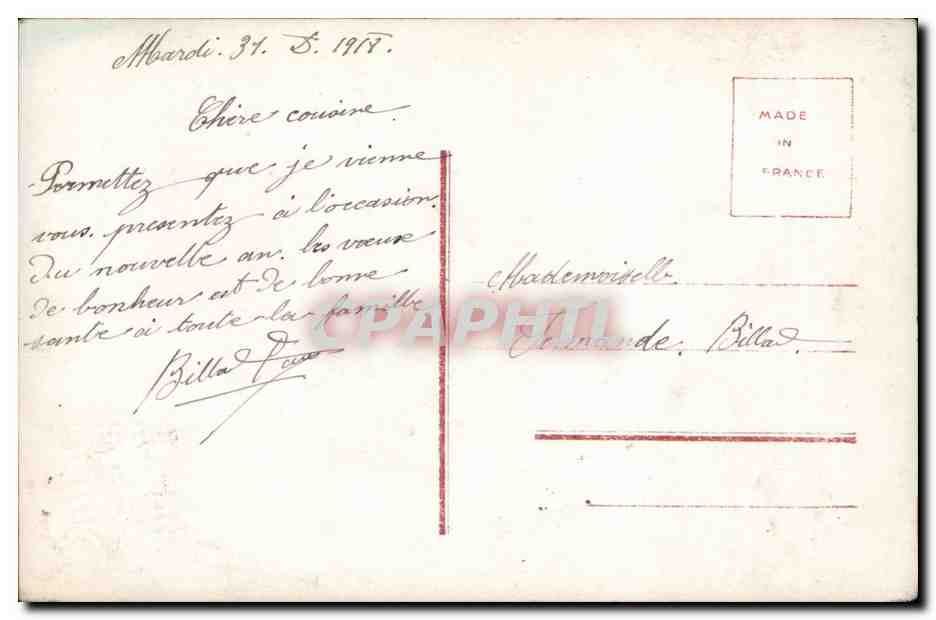 Mardi. 31. D. 1918.
Chère cousine.
Permettez que je vienne
vous. presentez à l'occasion.
du nouvelle an. les vœux
de bonheur est de bonne
sante à toute la famille
Billad
MADE
IN
FRANCE
Mademoiselle
Billad.
CPAPHIL